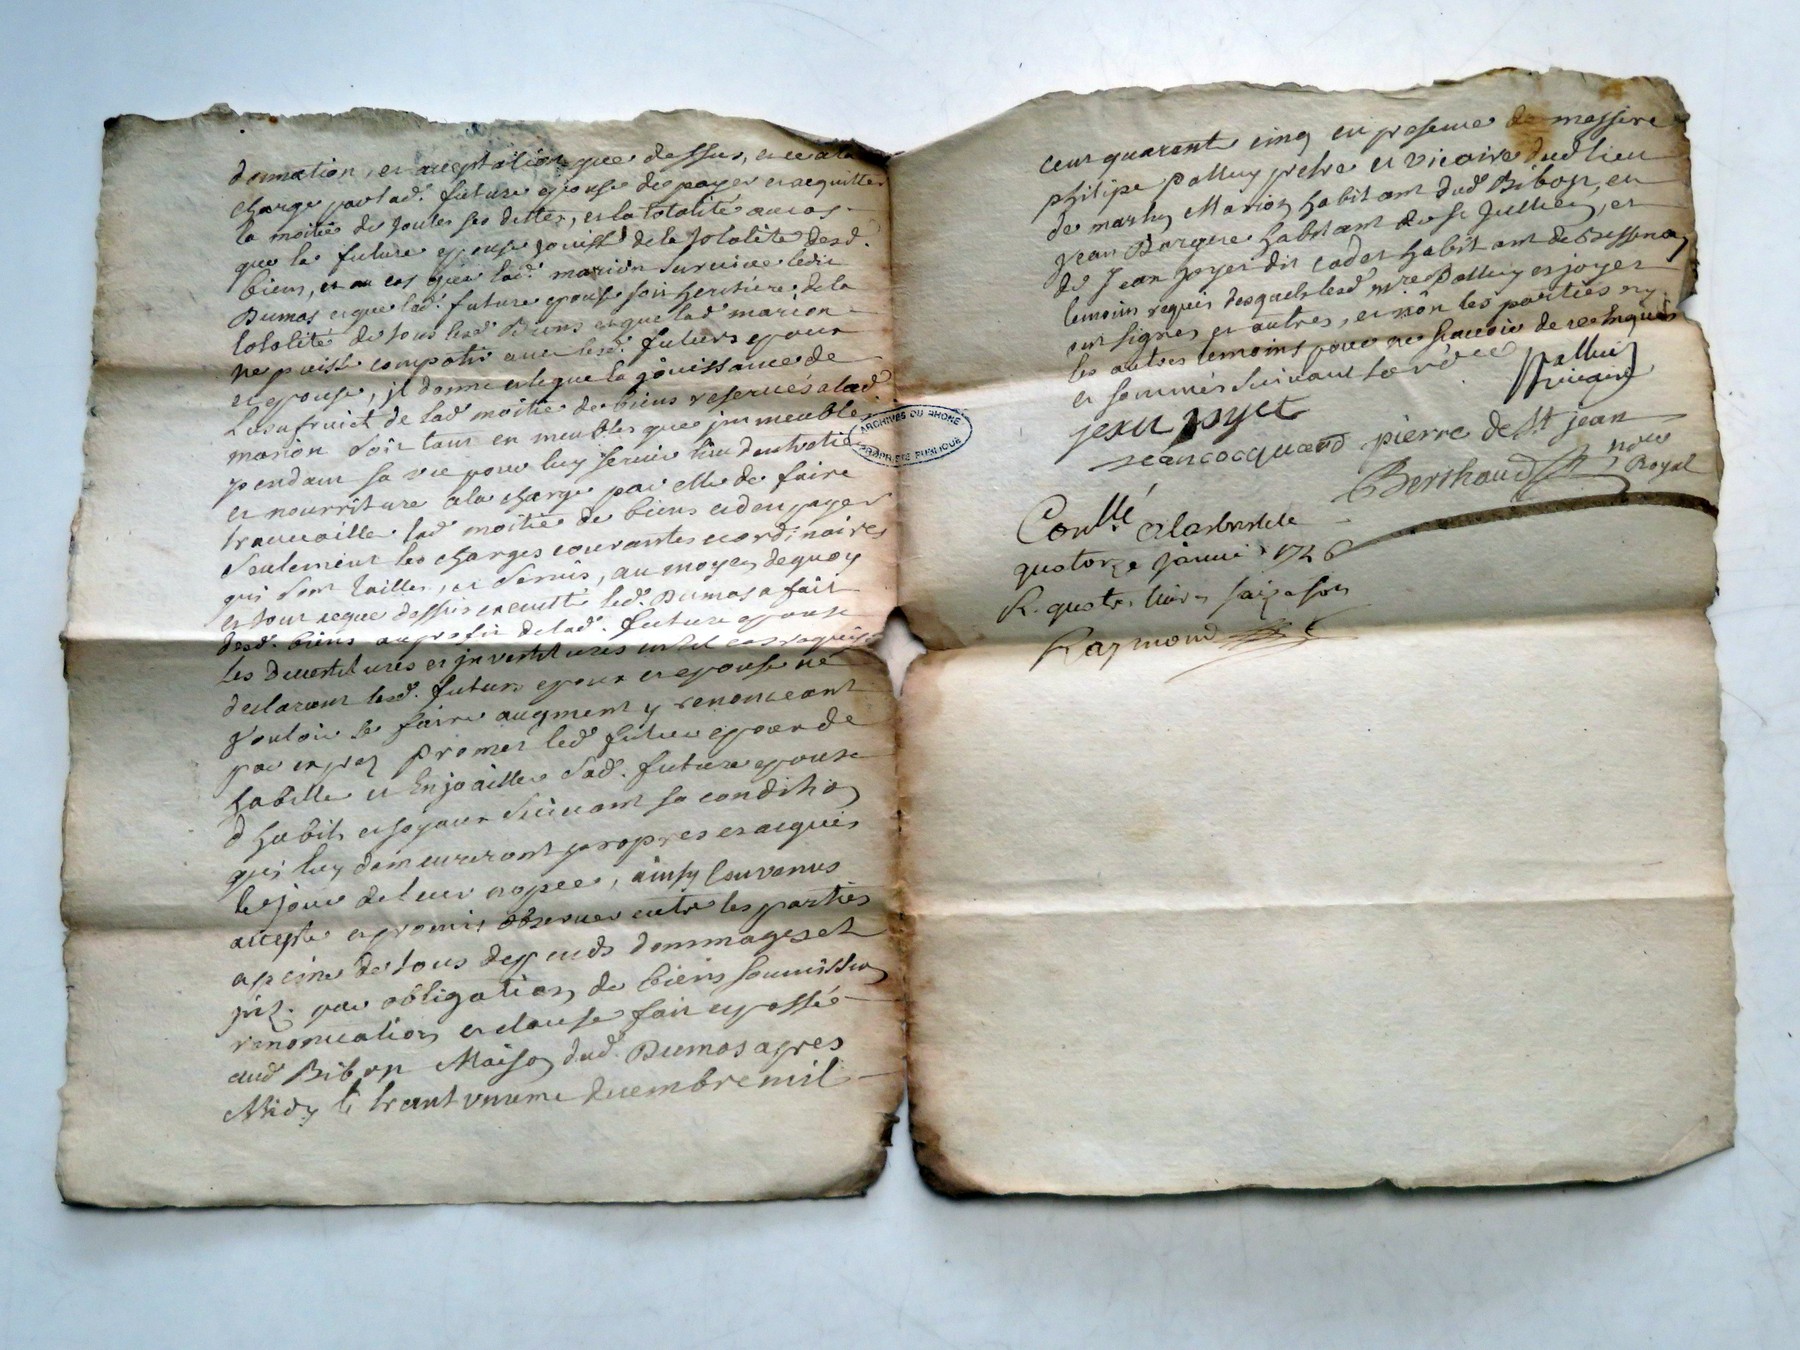 donnation, et acceptation que dessus, et ce a la
charge par lad. future epouse de payer et acquitter
la moitié de toutes ses dettes, et la totalité au cas
que la future epouse jouisse de la totalité desd.
biens, et au cas que lad. marion survive ledit
Dumas et que lad. future epouse soit heritiere de la
totalité de tous lesd. Biens et que lad. marion
ne puisse compatir avec lesd. futurs epoux
et epouse, il donne et legue la jouissance de
L'usufruict de lad. moitié de biens reservés a lad.
marion soit tant en meubles que immeubles
pendant sa vie pour luy servir lieu d'entretien
et nourriture a la charge par elle de faire
travailler lad. moitié de biens et d'en payer
seulement les charges courantes et ordinaires
qui sont tailles, et servis, au moyen de quoy
et tout ce que dessus executté led. Dumas a fait
desd. biens au profit de lad. future epouse
les devestitures et investitures en tel cas requises
declarant lesd. futurs epoux et epouse ne
vouloir se faire augment y renonceant
par exprez promet led. futur epoux de
habiller et Enjoailler sad. future epouse
d'habits et joyaux suivant sa condition
qui luy demeureront propres et acquis
le jour de leur nopce, ainsy convenus
accepté et promis observer entre les parties
a peine de tous depends dommages et
jnt. par obligation de biens soumission
renonciation et clause fait et passé
aud. Bibon Maison dud. Dumas apres
Midy le trente unieme decembre mil
cent quarante cinq en presence de messire
philipe palluy prestre et vicaire dud. lieu
de marion habitant dud. Bibon, et
jean habitant de St. Jullien, et
de Jean joyet dit cadet habitant de Bessenay
temoins requis desquels lesd. mre. Palluy et joyet
ont signés et autres, et non les parties ny
les autres temoins pour ne scavoir de ce enquis
et sommés suivant l'ord.ce
Palluy
vicaire
jean joyet
jean cocquard pierre de St jean
Berthaud nore Royal
Conllé à larbresle
quatorze janvier 1746
R. quatre livres seize sols
Raymond
ARCHIVES DU RHONE
PROPRIÉTÉ PUBLIQUE